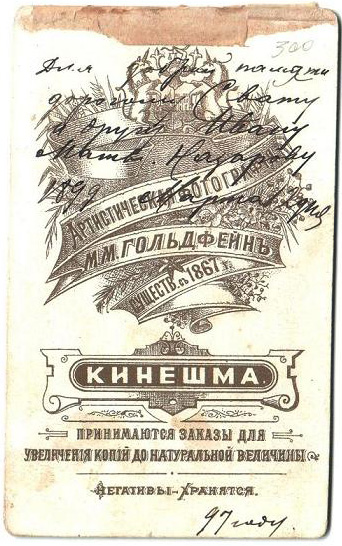 300
Для доброй памяти
дорогому Свату
и другу Ивану
Матв. Назарову
1899 Марта дня
АРТИСТИЧЕСКАЯ ФОТОГРАФІЯ
М.М. ГОЛЬДФЕЙНЪ
СУЩЕСТВ. съ 1867 г.
КИНЕШМА.
ПРИНИМАЮТСЯ ЗАКАЗЫ ДЛЯ
УВЕЛИЧЕНІЯ КОПІЙ ДО НАТУРАЛЬНОЙ ВЕЛИЧИНЫ
НЕГАТИВЫ-ХРАНЯТСЯ.
97 году.